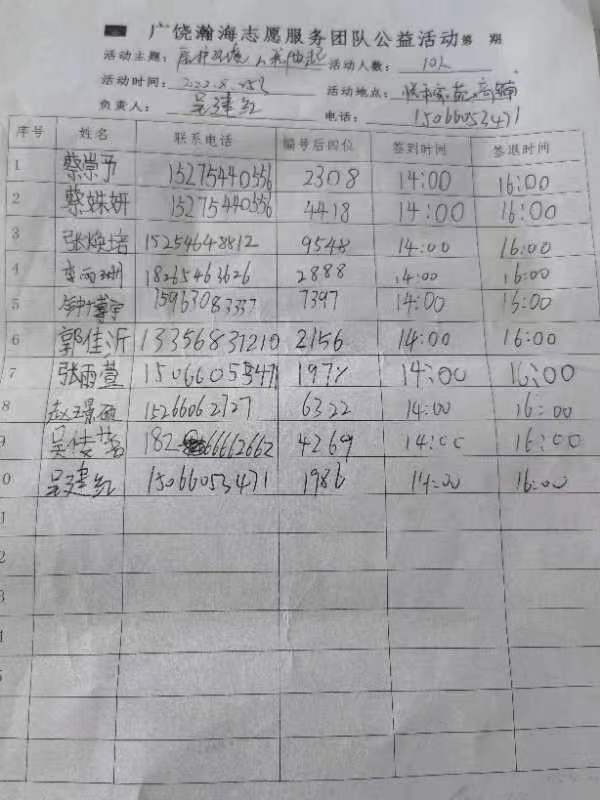 广饶瀚海志愿服务团队公益活动第 期
活动主题： 人 活动人数：10人
活动时间： 活动地点：
负责人：吴建红 电话：15066053471
序号 姓名 联系电话 编号后四位 签到时间 签退时间
1 蔡崇予 15275440556 2308 14:00 16:00
2 蔡姝妍 15275440556 4418 14:00 16:00
3 张焕培 15254648812 9548 14:00 16:00
4 18265463626 2888 14:00 16:00
5 15963083337 7397 14:00 16:00
6 郭佳沂 13356831210 2156 14:00 16:00
7 张雨萱 14:00 16:00
8 赵璟硕 15266062727 6322 14:00 16:00
9 4269 14:00 16:00
0 吴建红 15066053471 1986 14:00 16:00
1
2
3
4
5